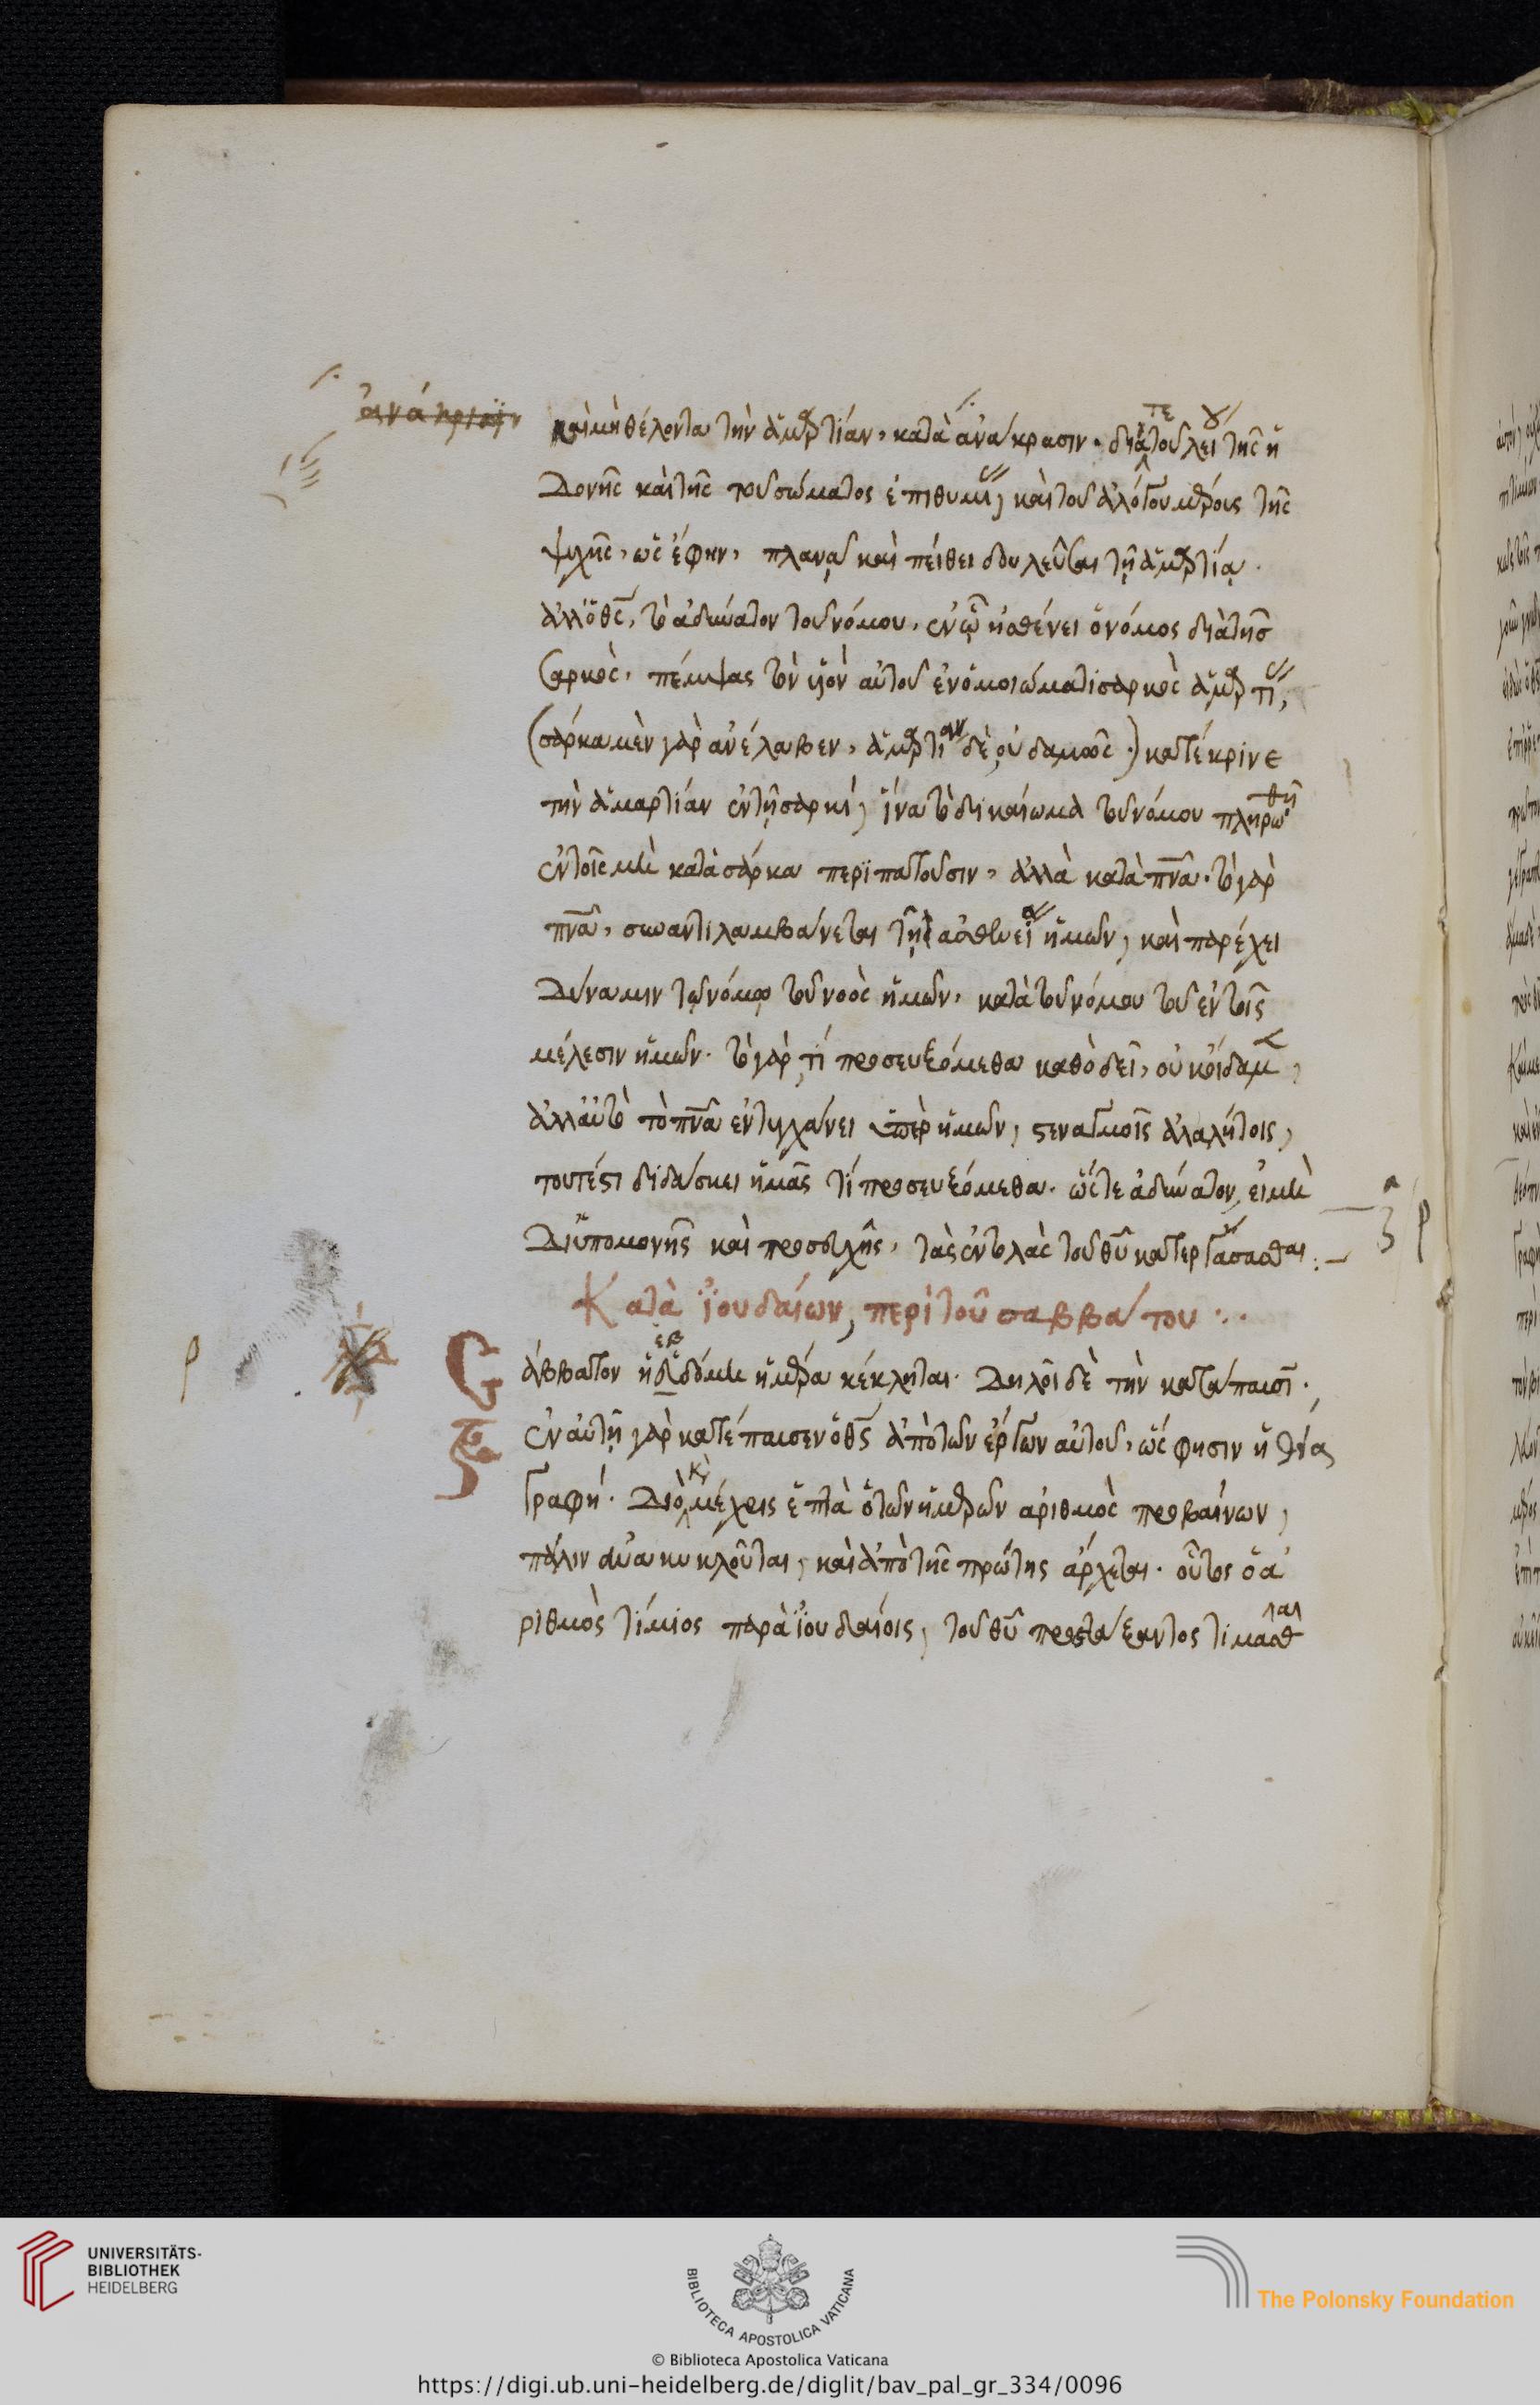 ἀνάκρισιν
καὶ μὴ θέλοντα τὴν ἁμαρτίαν, κατὰ ἀνάκρασιν. διά τε τοῦ λείου τῆς ἡ
δονῆς καὶ τῆς τοῦ σώματος ἐπιθυμίας, καὶ τοῦ ἀλόγου μέρους τῆς
ψυχῆς, ὡς ἔφην, πλανᾷ καὶ πείθει δουλεῦσαι τῇ ἁμαρτίᾳ.
ἀλλ' ὁ θεὸς, τὸ ἀδύνατον τοῦ νόμου, ἐν ᾧ ἠσθένει ὁ νόμος διὰ τῆς
σαρκὸς, πέμψας τὸν υἱὸν αὐτοῦ ἐν ὁμοιώματι σαρκὸς ἁμαρτίας,
(σάρκα μὲν γὰρ ἀνέλαβεν, ἁμαρτίαν δὲ οὐδαμῶς.) κατέκρινε
τὴν ἁμαρτίαν ἐν τῇ σαρκί, ἵνα τὸ δικαίωμα τοῦ νόμου πληρωθῇ
ἐν τοῖς μὴ κατὰ σάρκα περιπατοῦσιν, ἀλλὰ κατὰ πνα. τὸ γὰρ
πνα, συναντιλαμβάνεται τῇ ἀσθενείᾳ ἡμῶν, καὶ παρέχει
δύναμιν τῷ νόμῳ τοῦ νοὸς ἡμῶν, κατὰ τοῦ νόμου τοῦ ἐν τοῖς
μέλεσιν ἡμῶν. τὸ γὰρ τί προσευξόμεθα καθὸ δεῖ, οὐκ οἴδαμεν,
ἀλλ' αὐτὸ τὸ πνα ἐντυγχάνει ὑπὲρ ἡμῶν, στεναγμοῖς ἀλαλήτοις,
τουτέστι διδάσκει ἡμᾶς τί προσευξόμεθα. ὥστε ἀδύνατον, εἰ μὴ
δι' ὑπομονῆς καὶ προσευχῆς, τὰς ἐντολὰς τοῦ θυ κατεργάσασθαι :
Κατὰ Ἰουδαίων, περὶ τοῦ σαββάτου :
Σάββατον ἡ ἑβδόμη ἡμέρα κέκληται. δηλοῖ δὲ τὴν κατάπαυσιν.
ἐν αὐτῇ γὰρ κατέπαυσεν ὁ θς ἀπὸ τῶν ἔργων αὐτοῦ, ὥς φησιν ἡ θεία
γραφή. διὸ καὶ μέχρις ἑπτὰ ὁ τῶν ἡμερῶν ἀριθμὸς προβαίνων,
πάλιν ἀνακυκλοῦται, καὶ ἀπὸ τῆς πρώτης ἄρχεται. οὗτος ὁ ἀ
ριθμὸς τίμιος παρὰ Ἰουδαίοις, τοῦ θυ προστάξαντος τιμᾶσθαι
UNIVERSITÄTS-
BIBLIOTHEK
HEIDELBERG
BIBLIOTECA APOSTOLICA VATICANA
The Polonsky Foundation
© Biblioteca Apostolica Vaticana
https://digi.ub.uni-heidelberg.de/diglit/bav_pal_gr_334/0096